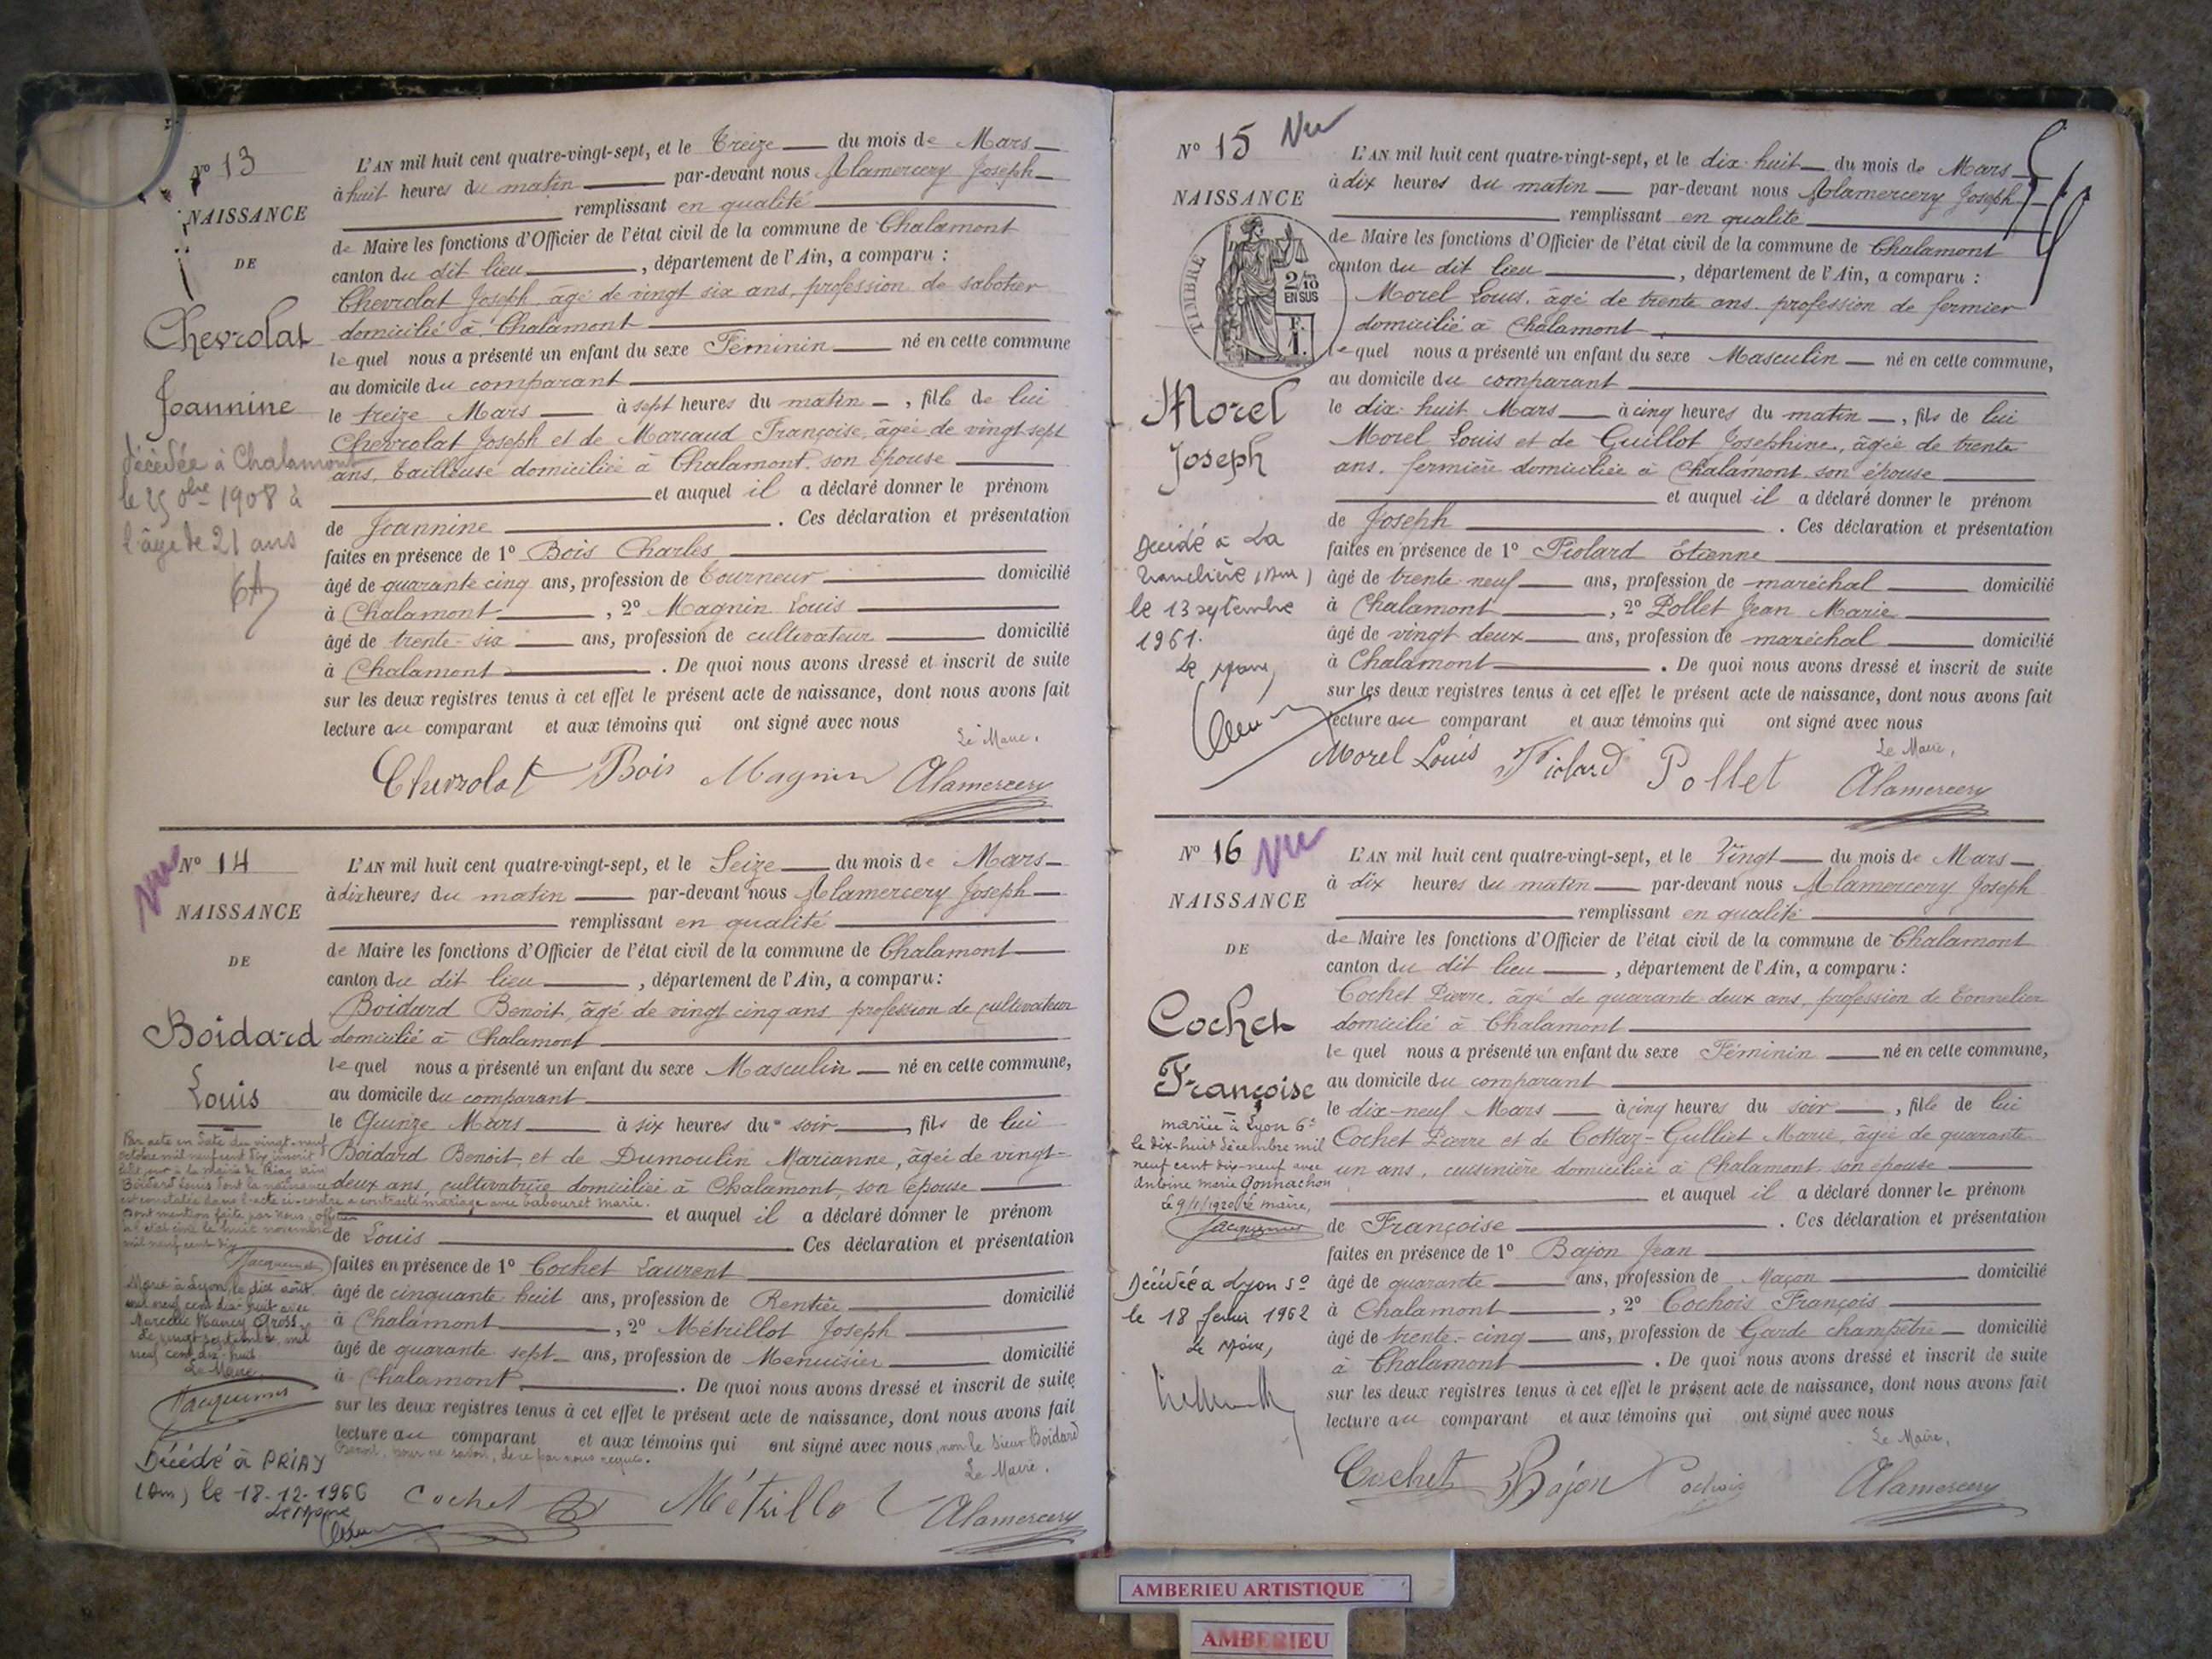 N° 13
NAISSANCE
DE
Chevrolat
Joannine
décédée à Chalamont
le 25 9bre 1908 à
l'âge de 21 ans
L'AN mil huit cent quatre-vingt-sept, et le Treize du mois de Mars
à huit heures du matin par-devant nous Alamercery Joseph
remplissant en qualité
de Maire les fonctions d'Officier de l'état civil de la commune de Chalamont
canton du dit lieu, département de l'Ain, a comparu :
Chevrolat Joseph, âgé de vingt six ans, profession de sabotier
domicilié à Chalamont
lequel nous a présenté un enfant du sexe Féminin né en cette commune
au domicile du comparant
le treize Mars à sept heures du matin, fille de lui
Chevrolat Joseph et de Marcaud Françoise, âgée de vingt-sept
ans, tailleuse domiciliée à Chalamont, son épouse
et auquel il a déclaré donner le prénom
de Joannine. Ces déclaration et présentation
faites en présence de 1° Bois Charles
âgé de quarante cinq ans, profession de Tourneur domicilié
à Chalamont, 2° Magnin Louis
âgé de trente-six ans, profession de cultivateur domicilié
à Chalamont. De quoi nous avons dressé et inscrit de suite
sur les deux registres tenus à cet effet le présent acte de naissance, dont nous avons fait
lecture au comparant et aux témoins qui ont signé avec nous
Le Maire,
Chevrolat Bois Magnin Alamercery
Vu
N° 14
NAISSANCE
DE
Boidard
Louis
Par acte en date du vingt-neuf
octobre mil neuf cent dix inscrit
ledit jour à la mairie de Priay (Ain)
Boidard Louis dont la naissance
est constatée dans l'acte ci-contre a contracté mariage avec Babouret Marie.
Dont mention faite par nous, officier
de l'état civil le huit novembre
mil neuf cent dix
Jacquemet
Marié à Lyon, le dix août
mil neuf cent dix-huit avec
Marcelle Nancy Gross.
Le vingt septembre mil
neuf cent dix-huit
Le Maire,
Décédé à PRIAY
(Ain) le 18-12-1966
Le Maire
L'AN mil huit cent quatre-vingt-sept, et le Seize du mois de Mars
à dix heures du matin par-devant nous Alamercery Joseph
remplissant en qualité
de Maire les fonctions d'Officier de l'état civil de la commune de Chalamont
canton du dit lieu, département de l'Ain, a comparu :
Boidard Benoit, âgé de vingt cinq ans profession de cultivateur
domicilié à Chalamont
lequel nous a présenté un enfant du sexe Masculin né en cette commune,
au domicile du comparant
le Quinze Mars à six heures du soir, fils de lui
Boidard Benoit, et de Dumoulin Marianne, âgée de vingt-
deux ans, cultivatrice domiciliée à Chalamont, son épouse
et auquel il a déclaré donner le prénom
de Louis Ces déclaration et présentation
faites en présence de 1° Cochet Laurent
âgé de cinquante huit ans, profession de Rentier domicilié
à Chalamont, 2° Métrillot Joseph
âgé de quarante sept ans, profession de Menuisier domicilié
à Chalamont. De quoi nous avons dressé et inscrit de suite
sur les deux registres tenus à cet effet le présent acte de naissance, dont nous avons fait
lecture au comparant et aux témoins qui ont signé avec nous, non le sieur Boidard
Benoit, pour ne savoir, de ce par nous requis.
Le Maire,
Cochet Métrillot Alamercery
N° 15 Vu
NAISSANCE
TIMBRE
2/10 EN SUS
F. 1.
Morel
Joseph
Décédé à La
Tranclière (Ain)
le 13 septembre
1961.
Le Maire,
L'AN mil huit cent quatre-vingt-sept, et le dix-huit du mois de Mars
à dix heures du matin par-devant nous Alamercery Joseph
remplissant en qualité
de Maire les fonctions d'Officier de l'état civil de la commune de Chalamont
canton du dit lieu, département de l'Ain, a comparu :
Morel Louis, âgé de trente ans, profession de fermier
domicilié à Chalamont
lequel nous a présenté un enfant du sexe Masculin né en cette commune,
au domicile du comparant
le dix-huit Mars à cinq heures du matin, fils de lui
Morel Louis et de Guillot Josephine, âgée de trente
ans, fermière domiciliée à Chalamont son épouse
et auquel il a déclaré donner le prénom
de Joseph. Ces déclaration et présentation
faites en présence de 1° Fiolard Etienne
âgé de trente neuf ans, profession de maréchal domicilié
à Chalamont, 2° Pollet Jean Marie
âgé de vingt deux ans, profession de maréchal domicilié
à Chalamont. De quoi nous avons dressé et inscrit de suite
sur les deux registres tenus à cet effet le présent acte de naissance, dont nous avons fait
lecture au comparant et aux témoins qui ont signé avec nous
Le Maire,
Morel Louis Fiolard Pollet Alamercery
N° 16 Vu
NAISSANCE
DE
Cochet
Françoise
mariée à Lyon 6e
le dix-huit décembre mil
neuf cent dix-neuf avec
Antoine Marie Gonnachon
Le 9/1/1920 Le maire,
Décédée à Lyon 5°
le 18 février 1962
Le Maire,
L'AN mil huit cent quatre-vingt-sept, et le Vingt du mois de Mars
à dix heures du matin par-devant nous Alamercery Joseph
remplissant en qualité
de Maire les fonctions d'Officier de l'état civil de la commune de Chalamont
canton du dit lieu, département de l'Ain, a comparu :
Cochet Pierre, âgé de quarante deux ans, profession de Tonnelier
domicilié à Chalamont
lequel nous a présenté un enfant du sexe Féminin né en cette commune,
au domicile du comparant
le dix-neuf Mars à cinq heures du soir, fille de lui
Cochet Pierre et de Cottaz-Gulliet Marie, âgée de quarante
un ans, cuisinière domiciliée à Chalamont son épouse
et auquel il a déclaré donner le prénom
de Françoise. Ces déclaration et présentation
faites en présence de 1° Bajon Jean
âgé de quarante ans, profession de Maçon domicilié
à Chalamont, 2° Cochois François
âgé de trente-cinq ans, profession de Garde champêtre domicilié
à Chalamont. De quoi nous avons dressé et inscrit de suite
sur les deux registres tenus à cet effet le présent acte de naissance, dont nous avons fait
lecture au comparant et aux témoins qui ont signé avec nous
Le Maire,
Cochet Bajon Cochois Alamercery
AMBERIEU ARTISTIQUE
AMBERIEU